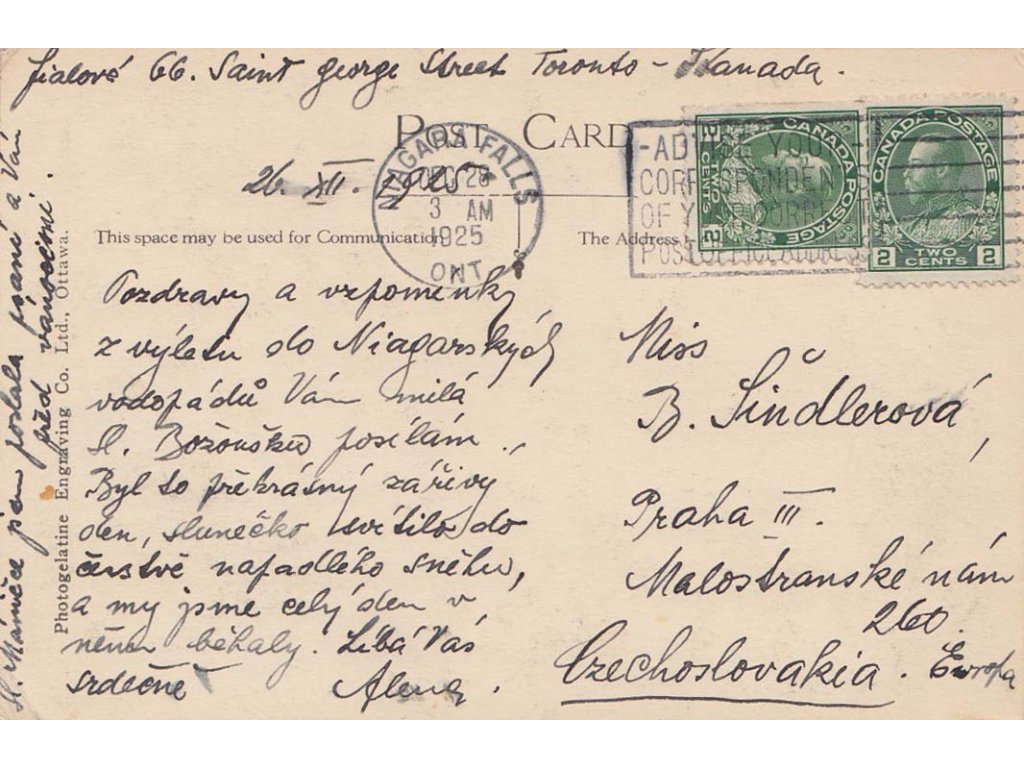 Fialové 66. Saint george Street Toronto - Kanada.
POST CARD
26. XII. 1925
NIAGARA FALLS
DEC 26
3 AM
1925
ONT
-ADVISE YOUR-
CORRESPONDENTS
OF YOUR CORRECT
POST OFFICE ADDRESS
CANADA POSTAGE
TWO CENTS
2 2
CANADA POSTAGE
2 TWO CENTS 2
This space may be used for Communication
The Address
Pozdravy a vzpomínky
z výletu do Niagarských
vodopádů Vám milá
sl. Boženko posílám.
Byl to překrásný zářivý
den, slunečko svítilo do
čerstvě napadlého sněhu,
a my jsme celý den v
něm běhaly. Líbá Vás
srdečně Alena.
Miss
B. Šindlerová,
Praha III.
Malostranské nám
260.
Czechoslovakia. Evropa
sl. Mánice jsem poslala psaní a Vám
před vánocemi.
Photogelatine Engraving Co. Ltd., Ottawa.